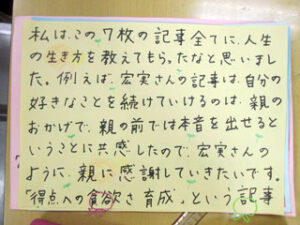 私は、この7枚の記事全てに、人生
の生き方を教えてもらったなと思いまし
た。例えば、宏実さんの記事は、自分の
好きなことを続けていけるのは、親の
おかげで、親の前では本音を出せると
いうことに共感したので、宏実さんの
ように、親に感謝していきたいです。
「得点への貪欲さ育成」という記事